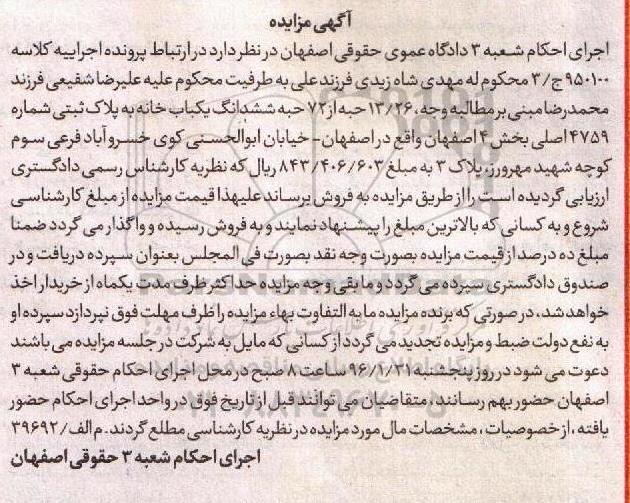 آگهی مزایده
اجرای احکام شعبه ۳ دادگاه عمومی حقوقی اصفهان در نظر دارد در ارتباط پرونده اجراییه کلاسه
۹۵۰۱۰۰ ج/۳ محکوم له مهدی شاه زیدی فرزند علی به طرفیت محکوم علیه علیرضا شفیعی فرزند
محمدرضا مبنی بر مطالبه وجه، ۱۳/۲۶ حبه از ۷۲ حبه ششدانگ یکباب خانه به پلاک ثبتی شماره
۴۷۵۹ اصلی بخش ۴ اصفهان واقع در اصفهان- خیابان ابوالحسنی کوی خسرو آباد فرعی سوم
کوچه شهید مهرورز، پلاک ۳ به مبلغ ۸۴۳/۴۰۶/۶۰۳ ریال که نظریه کارشناس رسمی دادگستری
ارزیابی گردیده است را از طریق مزایده به فروش برساند علیهذا قیمت مزایده از مبلغ کارشناسی
شروع و به کسانی که بالاترین مبلغ را پیشنهاد نمایند و به فروش رسیده و واگذار می گردد ضمنا
مبلغ ده درصد از قیمت مزایده بصورت وجه نقد بصورت فی المجلس بعنوان سپرده دریافت و در
صندوق دادگستری سپرده می گردد و مابقی وجه مزایده حداکثر ظرف مدت یکماه از خریدار اخذ
خواهد شد، در صورتی که برنده مزایده مابه التفاوت بهاء مزایده را ظرف مهلت فوق نپردازد سپرده او
به نفع دولت ضبط و مزایده تجدید می گردد از کسانی که مایل به شرکت در جلسه مزایده می باشند
دعوت می شود در روز پنجشنبه ۹۶/۱/۳۱ ساعت ۸ صبح در محل اجرای احکام حقوقی شعبه ۳
اصفهان حضور بهم رسانند، متقاضیان می توانند قبل از تاریخ فوق در واحد اجرای احکام حضور
یافته، از خصوصیات، مشخصات مال مورد مزایده در نظریه کارشناسی مطلع گردند. م الف/ ۳۹۶۹۲
اجرای احکام شعبه ۳ حقوقی اصفهان